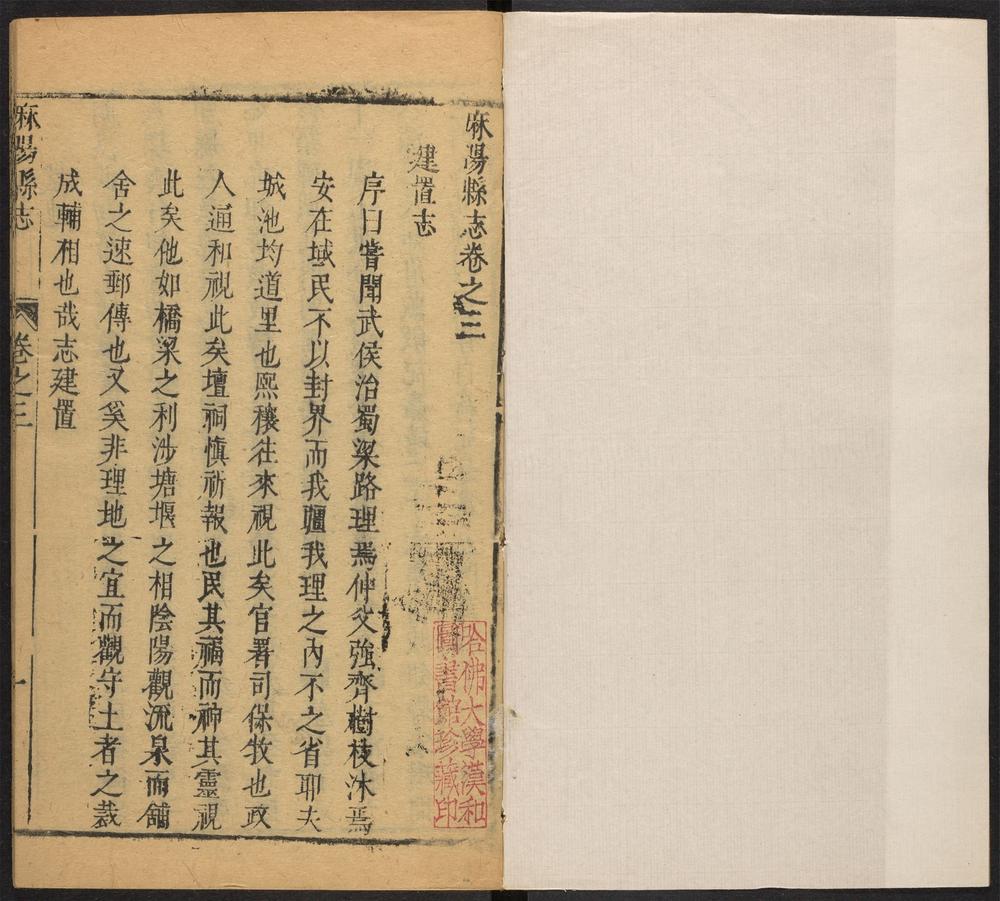 麻陽縣志卷之三
建置志
序曰嘗聞武侯治蜀梁路理焉仲父強齊樹枝沐焉
安在域民不以封界而我疆我理之內不之省耶夫
城池均道里也熙穰往來視此矣官署司保牧也政
人通和視此矣壇祠慎祈報也民其福而神其靈視
此矣他如橋梁之利涉塘堰之相陰陽觀流泉而舖
舍之速郵傳也又奚非理地之宜而觀守土者之裁
成輔相也哉志建置
麻陽縣志
卷之三
一
哈佛大學漢和
圖書館珍藏印